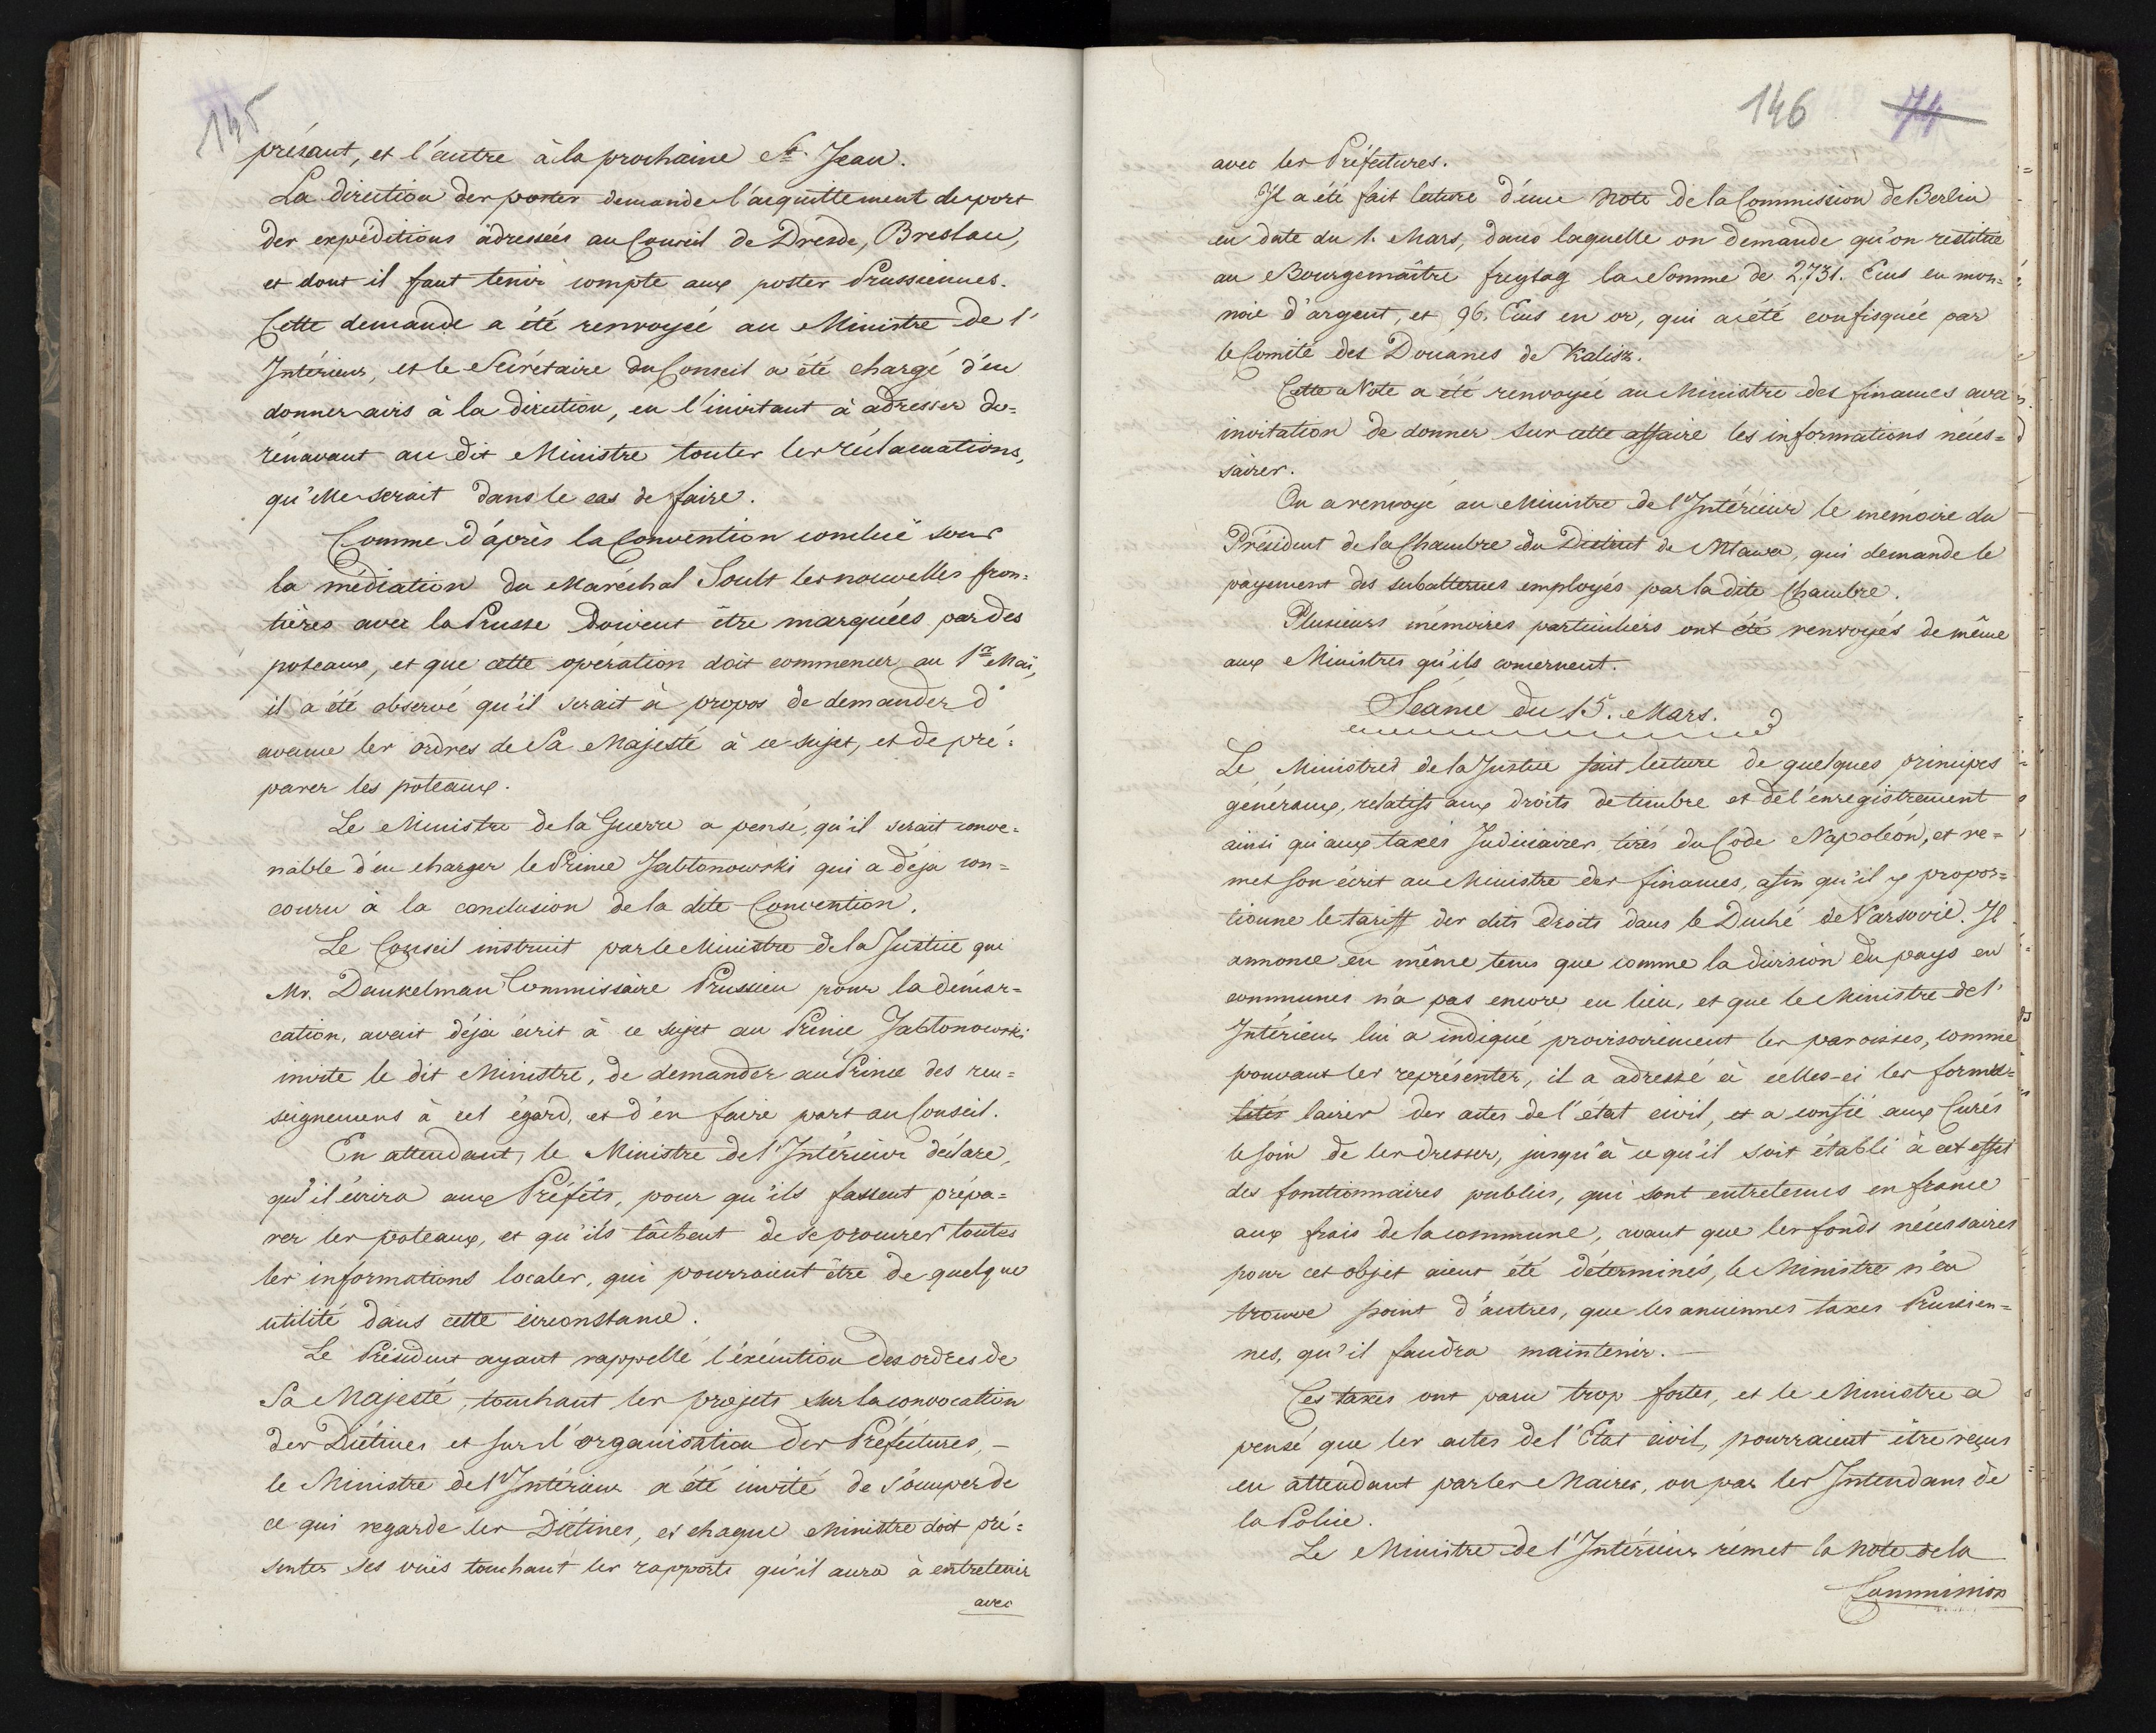 145
présant, et l'autre à la prochaine St. Jean.
La direction des postes demande l'acquittement du port
des expéditions adressées au Conseil de Dresde, Breslau,
et dont il faut tenir compte aux postes Prussiennes.
Cette demande a été renvoyée au Ministre de l'
Intérieur, et le Secrétaire du Conseil a été chargé d'en
donner avis à la direction, en l'invitant à adresser do-
rénavant au dit Ministre toutes les réclamations,
qu'elle serait dans le cas de faire.
Comme d'après la Convention conclüe sous
la médiation du Maréchal Soult les nouvelles fron-
tières avec la Prusse doivent être marquées par des
poteaux, et que cette opération doit commencer au 1er Mai,
il a été observé qu'il serait à propos de demander d'
avance les ordres de Sa Majesté à ce sujet, et de pré-
parer les poteaux.
Le Ministre de la Guerre a pensé, qu'il serait conve-
nable d'en charger le Prince Jabłonowski qui a déja con-
couru à la conclusion de la dite Convention.
Le Conseil instruit par le Ministre de la Justice que
Mr. Dankelman Commissaire Prussien pour la démar-
cation, avait déja écrit à ce sujet au Prince Jabłonowski
invite le dit Ministre, de demander au Prince des ren-
seignemens à cet égard, et d'en faire part au Conseil.
En attendant, le Ministre de l'Intérieur déclare,
qu'il écrira aux Préfêts, pour qu'ils fassent prépa-
rer les poteaux, et qu'ils tâchent de se procurer toutes
les informations locales, qui pourraient être de quelque
utilité dans cette circonstance.
Le Président ayant rappellé l'éxécution des ordres de
Sa Majesté, touchant les projets sur la convocation
des Diétines et sur l'organisation des Préfectures, –
le Ministre de l'Intérieur a été invité de s'occuper de
ce qui regarde les Diétines, et chaque Ministre doit pré-
senter ses vuës touchant les rapports qu'il aura à entretenir
avec
146 74
avec les Préfectures.
Il a été fait lecture d'une Note de la Commission de Berlin
en date du 1. Mars, dans laquelle on demande qu'on restitue
au Bourgemaître Freytag la Somme de 2,731. Ecus en mon-
noie d'argent, et 96. Ecus en or, qui a été confisquée par
le Comité des Douanes de Kalisz.
Cette Note a été renvoyée au Ministre des finances avec
invitation de donner sur cette affaire les informations néces-
saires.
On a renvoyé au Ministre de l'Intérieur le mémoire du
Président de la Chambre du District de Mlawa, qui demande le
payement des subalternes employés par la dite Chambre.
Plusieurs mémoires particuliers ont été renvoyés de même
aux Ministres qu'ils concernent.
Séance du 15. Mars.
Le Ministre de la Justice fait lecture de quelques principes
généraux, relatifs aux droits de timbre et de l'enregistrement
ainsi qu'aux taxes Judiciaires, tirés du Code Napoléon, et re-
met son écrit au Ministre des finances, afin qu'il y propor-
tionne le tariff des dits droits dans le Duché de Varsovie. Il
annonce en même tems que comme la division du pays en
communes n'a pas encore eu lieu, et que le Ministre de l'
Intérieur lui a indiqué provisoirement les paroisses, comme
pouvant les représenter, il a adressé à celles-ci les formu-
lités laires des actes de l'état civil, et a confié aux Curés
le soin de les dresser, jusqu'à ce qu'il soit établi à cet effet
des fonctionnaires publics, qui sont entretenus en france
aux frais de la commune, avant que les fonds nécessaires
pour cet objet aient été déterminés, le Ministre n'en
trouve point d'autres, que les anciennes taxes Prussien-
nes, qu'il faudra maintenir. –
Ces taxes ont paru trop fortes, et le Ministre a
pensé que les actes de l'Etat civil, pourraient être reçus
en attendant par les Maires, ou par les Intendans de
la Police.
Le Ministre de l'Intérieur rémet la Note de la
Commission